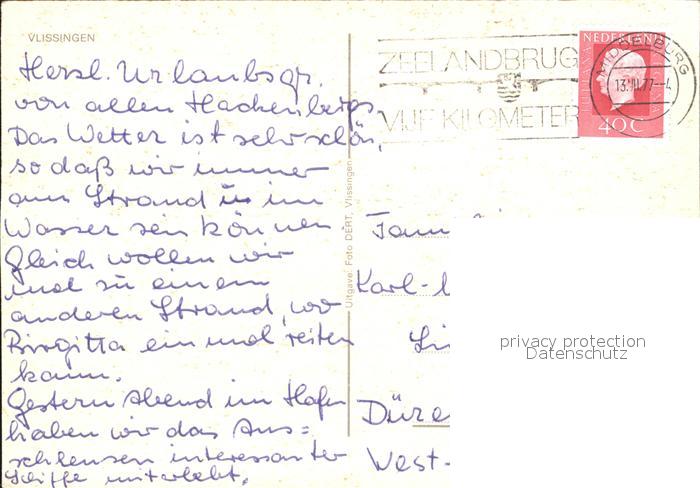 VLISSINGEN
Herzl. Urlaubsgr.
von allen Hackenbergs.
Das Wetter ist sehr schön,
so daß wir immer
am Strand u. im
Wasser sein können.
Gleich wollen wir
mal zu einem
anderen Strand, wo
Birgitta einmal reiten
kann.
Gestern Abend im Hafen
haben wir das Aus=
schleusen interessanter
Schiffe miterlebt.
Uitgave: Foto DERT, Vlissingen
ZEELANDBRUG
VIJF KILOMETER
NEDERLAND
JULIANA REGINA
40 C
MIDDELBURG
13.VII.77--4
Fam
Karl-
Düre
West-
privacy protection
Datenschutz